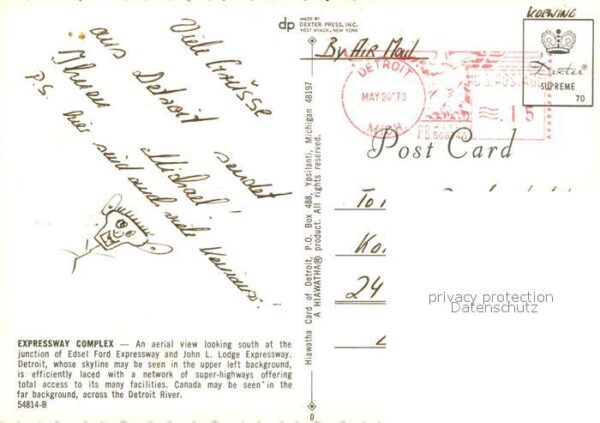 Viele Grüsse
aus Detroit
sendet
Ihnen
Michael!
P.S. hier sind auch viele
EXPRESSWAY COMPLEX — An aerial view looking south at the
junction of Edsel Ford Expressway and John L. Lodge Expressway.
Detroit, whose skyline may be seen in the upper left background,
is efficiently laced with a network of super-highways offering
total access to its many facilities. Canada may be seen in the
far background, across the Detroit River.
54814-B
dp
MADE BY
DEXTER PRESS, INC.
WEST NYACK, NEW YORK
Hiawatha Card of Detroit, P.O. Box 488, Ypsilanti, Michigan 48197
A HIAWATHA® product. All rights reserved.
0
KOEWING
By Air Mail
DETROIT
MAY 30'73
MICH
U.S. POSTAGE
15
Dexter®
SUPREME
70
Post Card
24
privacy protection
Datenschutz